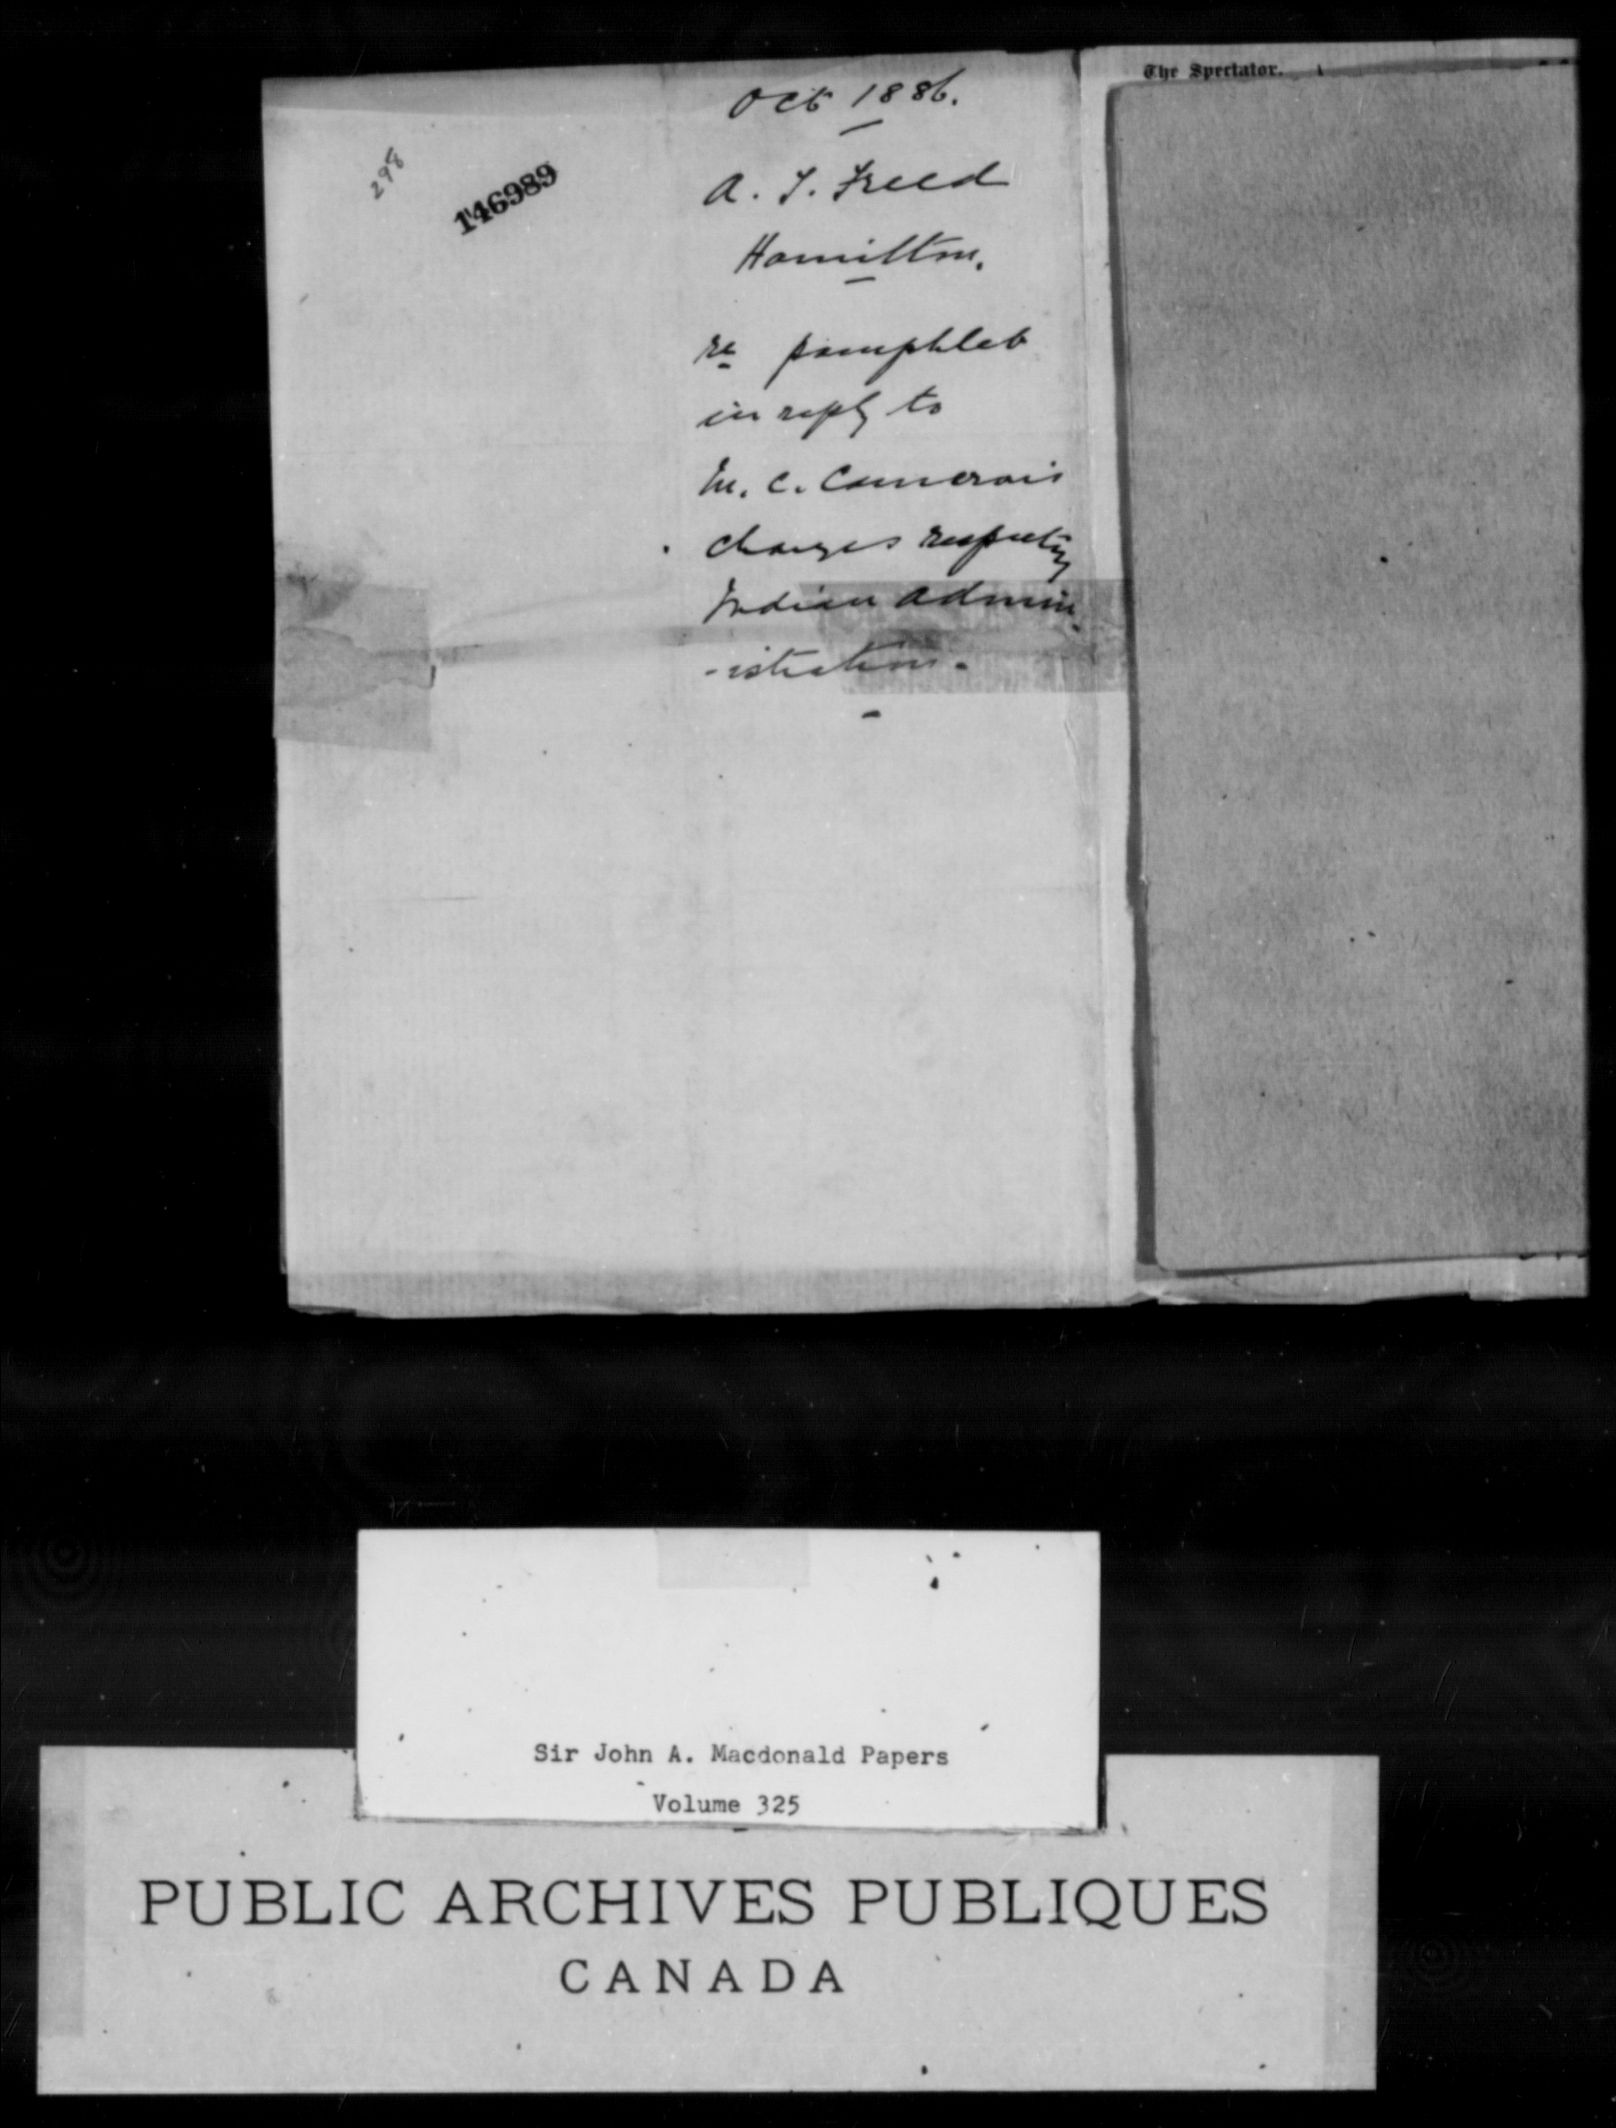 The Spectator.
Oct 1886.
298
146989
A. T. Freed
Hamilton.
re pamphlet
in reply to
M. C. Cameron's
charges respecting
Indian admin
-istration.
Sir John A. Macdonald Papers
Volume 325
PUBLIC ARCHIVES PUBLIQUES
CANADA